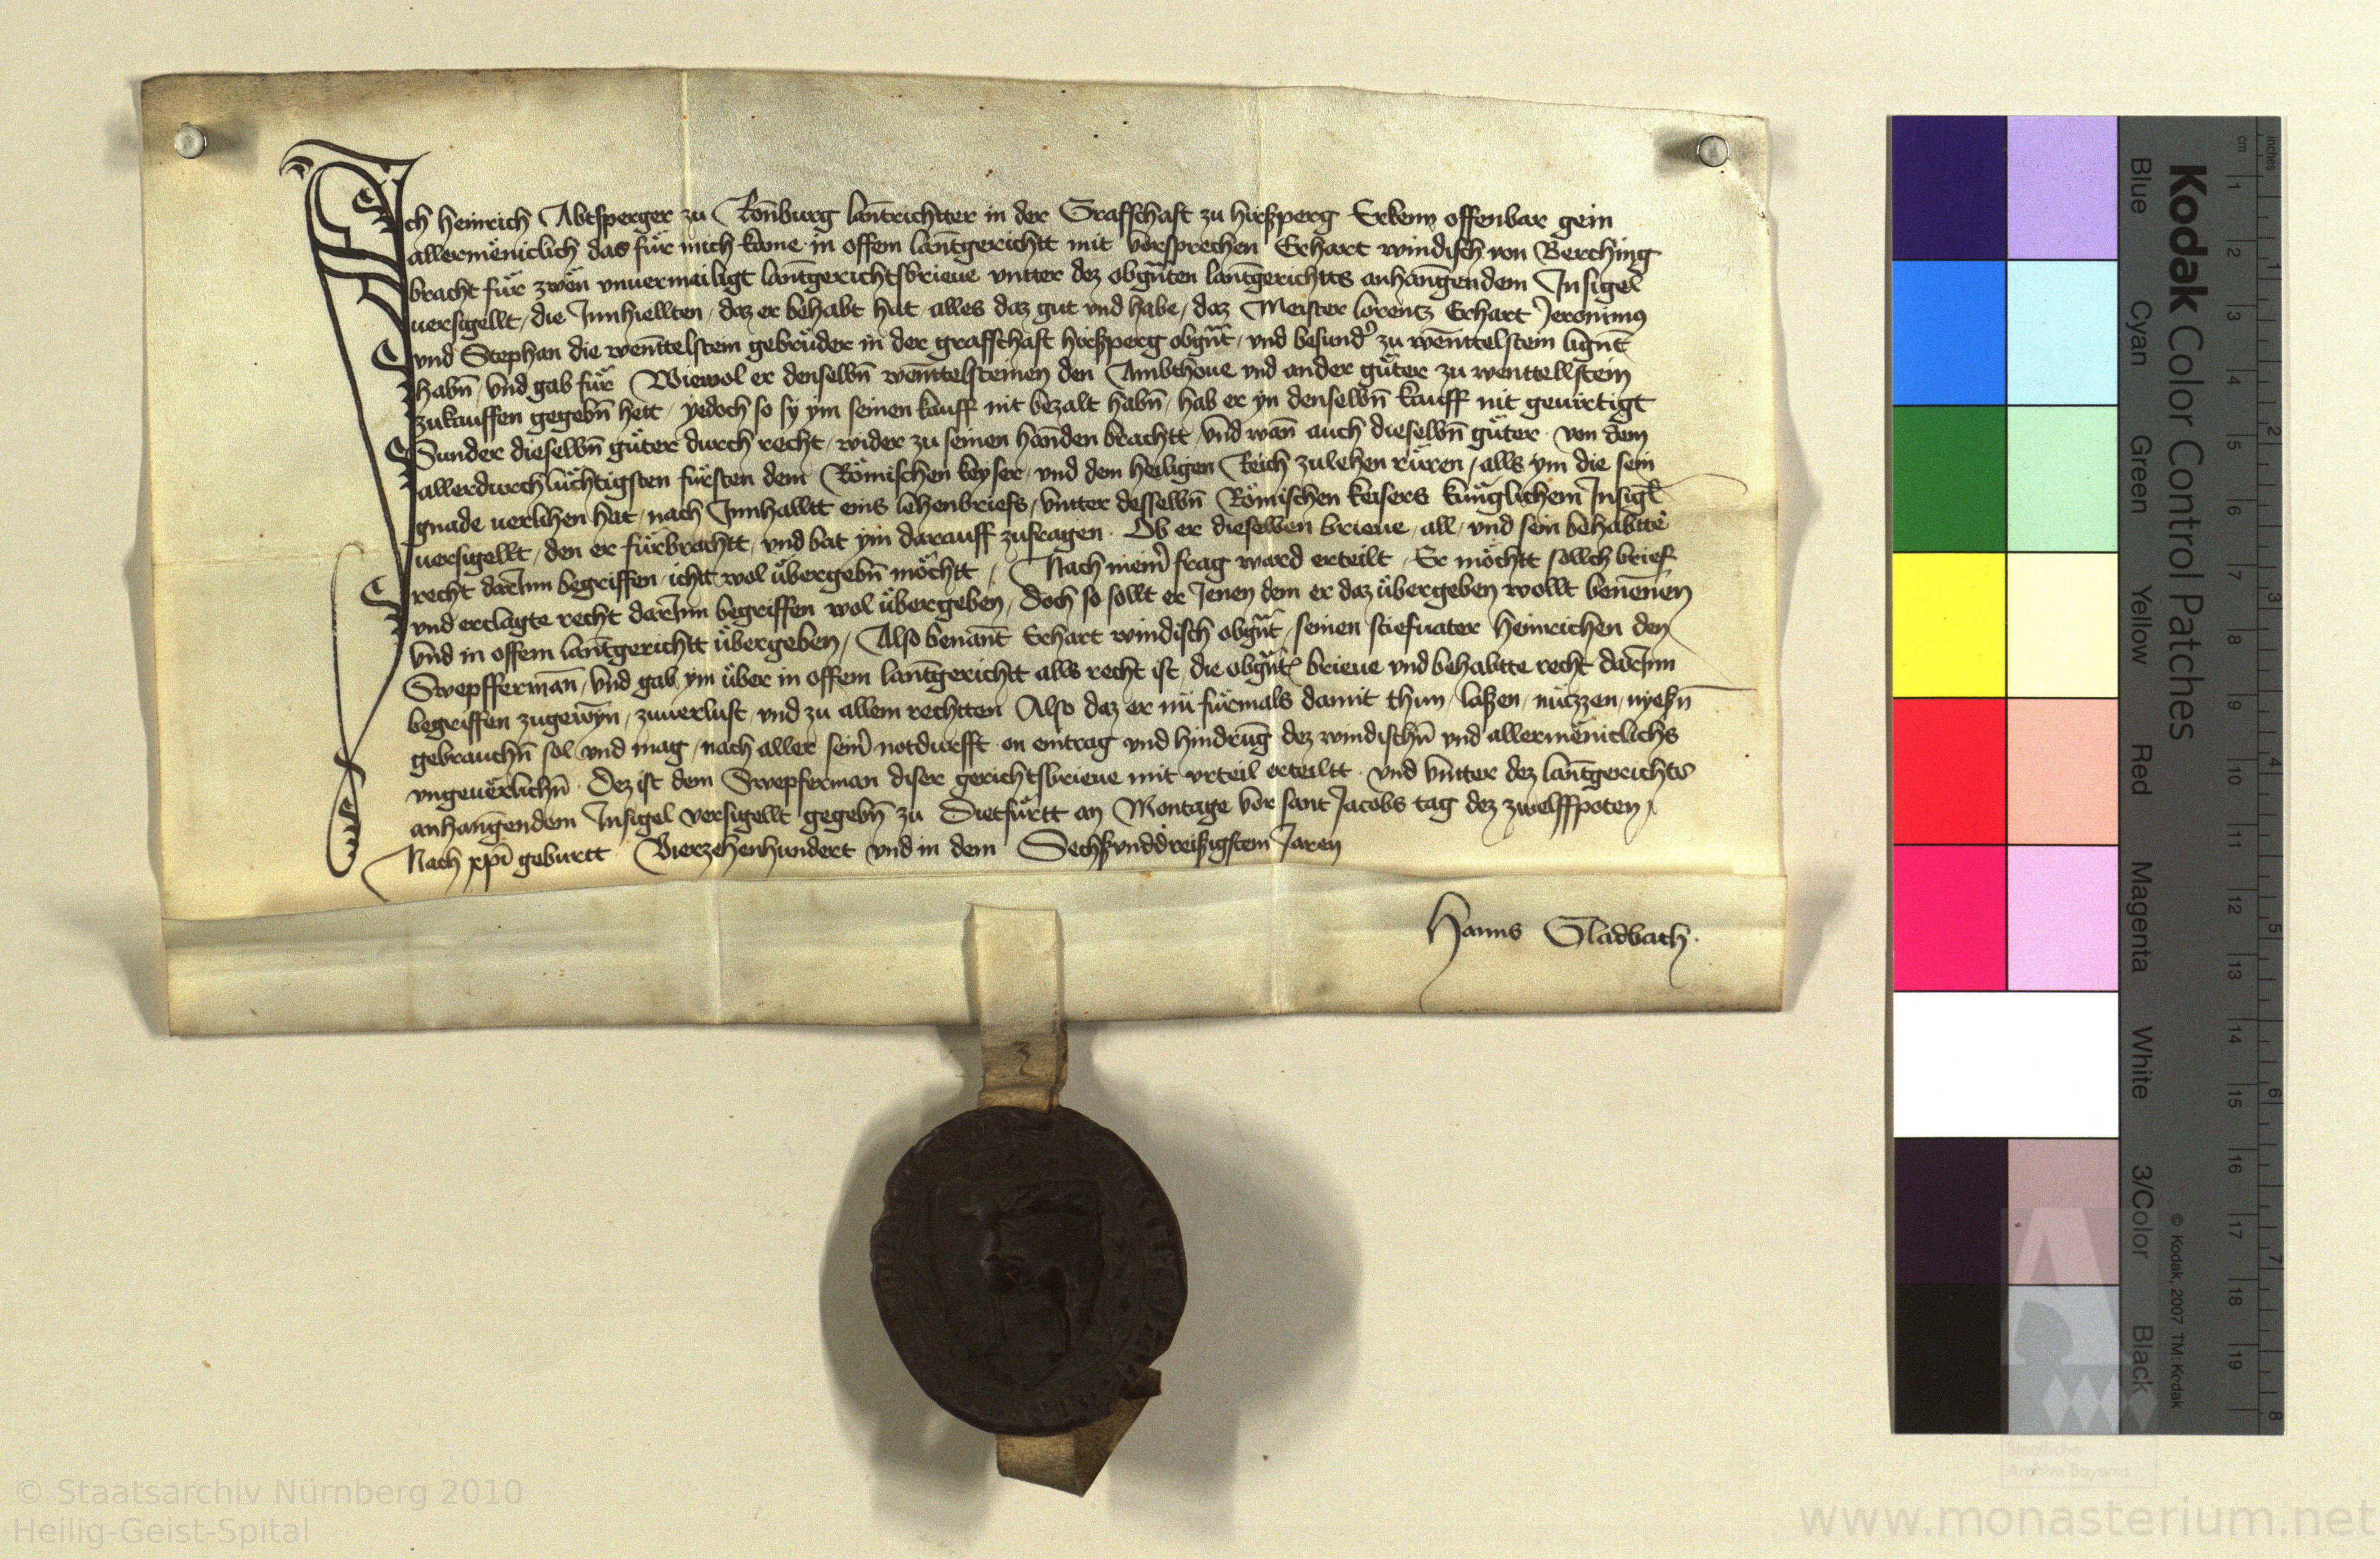 Ich Heinrich Abtsperger zu Ronburg lantrichtter in der Grafschaft zu hirßperg Erkenn offenbar gein
allermeniclich das für mich kome in offem lantgerichtt mit vorsprechen Erhart windisch von Berching
bracht für zwen vnuermailigt lantgerichtsbrieue vntter dez obgnten lantgerichtts anhangendem Insigel
uersigellt / die Innhiellten / daz er behabt hat alles daz gut vnd habe / daz Meister lorentz Erhart Jeronimus
vnd Stephan die wenttelstein gebrüder in der grafschaft hirßperg obgnt / vnd besunder zu wenttelstein lignt
habn / vnd gab für Wiewol er denselbn wenttelsteinen den Ambthoue vnd ander güter zu wenttellstein
zukauffen gegebn hett / yedoch so sy ym seinen kauff nit bezalt habn / hab er yn denselbn kauff nit geuertigt
Sunder dieselbn güter durch recht / wider zu seinen handen brachtt / vnd wan auch dieselbn güter von dem
allerdurchlüchtigsten fürsten dem Römischen keyser / vnd dem heiligen Reich zulehen rüren / alls ym die sein
gnade uerlihen hat / nach Innhalltt eins lehenbriefs / vntter desselbn Römischen keisers künglichem Insigl
uersigellt / den er fürbrachtt / vnd bat ym darauff zufragen . Ob er dieselben brieue / all / vnd sein behabtte
recht darInn begriffen / ichtt wol übergebn möchtt / Nach meiner frag ward erteilt / Er möchtt sollch brief
vnd erclagte recht darInn begriffen wol übergeben / doch so sollt er Jenen dem er daz übergeben wollt benennen
vnd in offem lantgerichtt übergeben / Also benant Erhart windisch obgnt / seinen stiefuater Heinrichen den
Swepfferman / vnd gab ym über in offem lantgerichtt alls recht ist / die obgnt brieue vnd behabtte recht darInn
begriffen zugewyn / zuuerlust / vnd zu allem rechtten Also daz er nü fürmals damit thun / laßen / nüczzen / nyeßn
gebrauchn sol vnd mag / nach aller seiner notdurfft on eintrag vnd hindrung dez windischn vnd allermeniclichs
vngeuerlichn . Dez ist dem Swepferman diser gerichtsbrieue mit vrteil erteiltt . vnd vntter dez lantgerichts
anhangendem Insigel versigellt gegebn zu Dietfurtt an Montage vor sant Jacobs tag dez zwelffpoten /
Nach xpi geburtt Vierzehenhundert vnd in dem Sechßvnddreißigstem Jaren
Hanns Gladbach .
3
Kodak Color Control Patches
Blue Cyan Green Yellow Red Magenta White 3/Color Black
© Kodak, 2007 TM: Kodak
cm 1 2 3 4 5 6 7 8 9 10 11 12 13 14 15 16 17 18 19
inches 1 2 3 4 5 6 7 8
© Staatsarchiv Nürnberg 2010
Heilig-Geist-Spital
www.monasterium.net